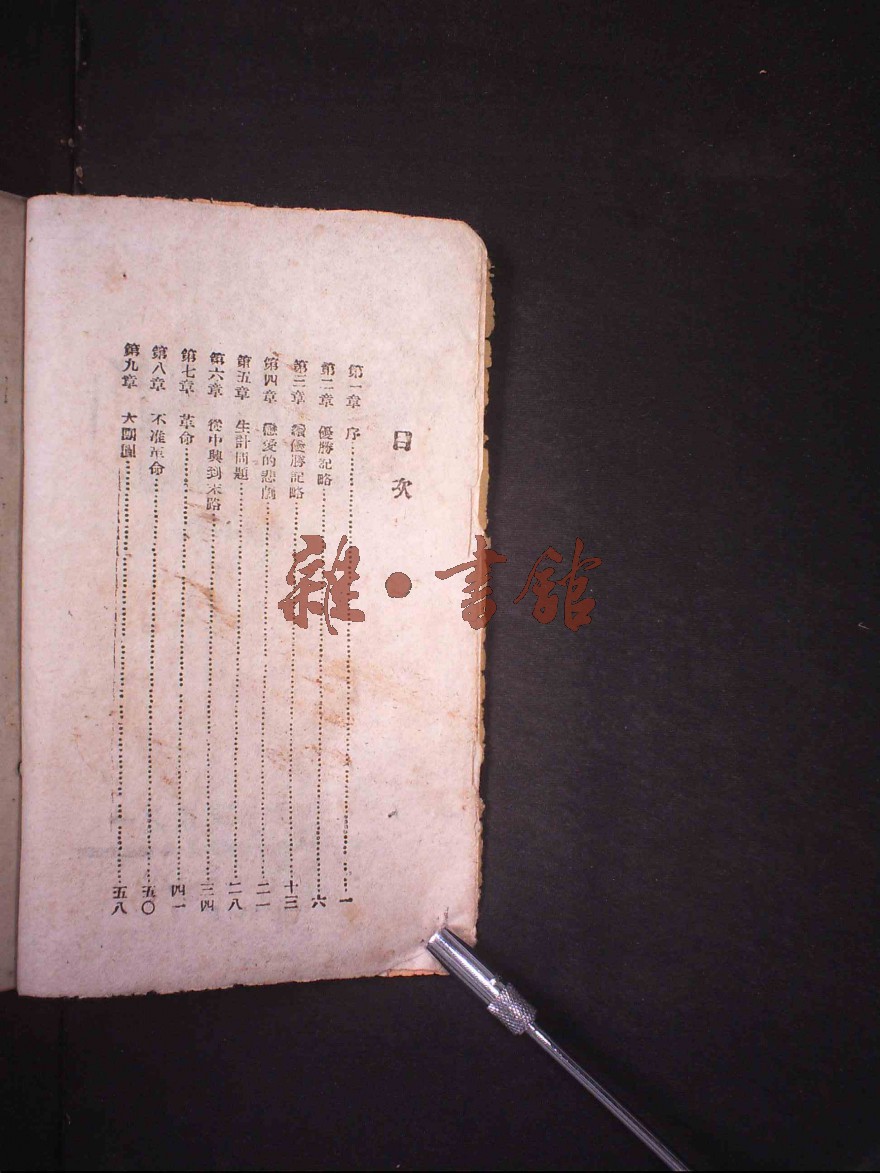 目次
第一章 序……一
第二章 優勝記略……六
第三章 續優勝記略……十三
第四章 戀愛的悲劇……二一
第五章 生計問題……二八
第六章 從中興到末路……三四
第七章 革命……四一
第八章 不准革命……五〇
第九章 大團圓……五八
雜·書館